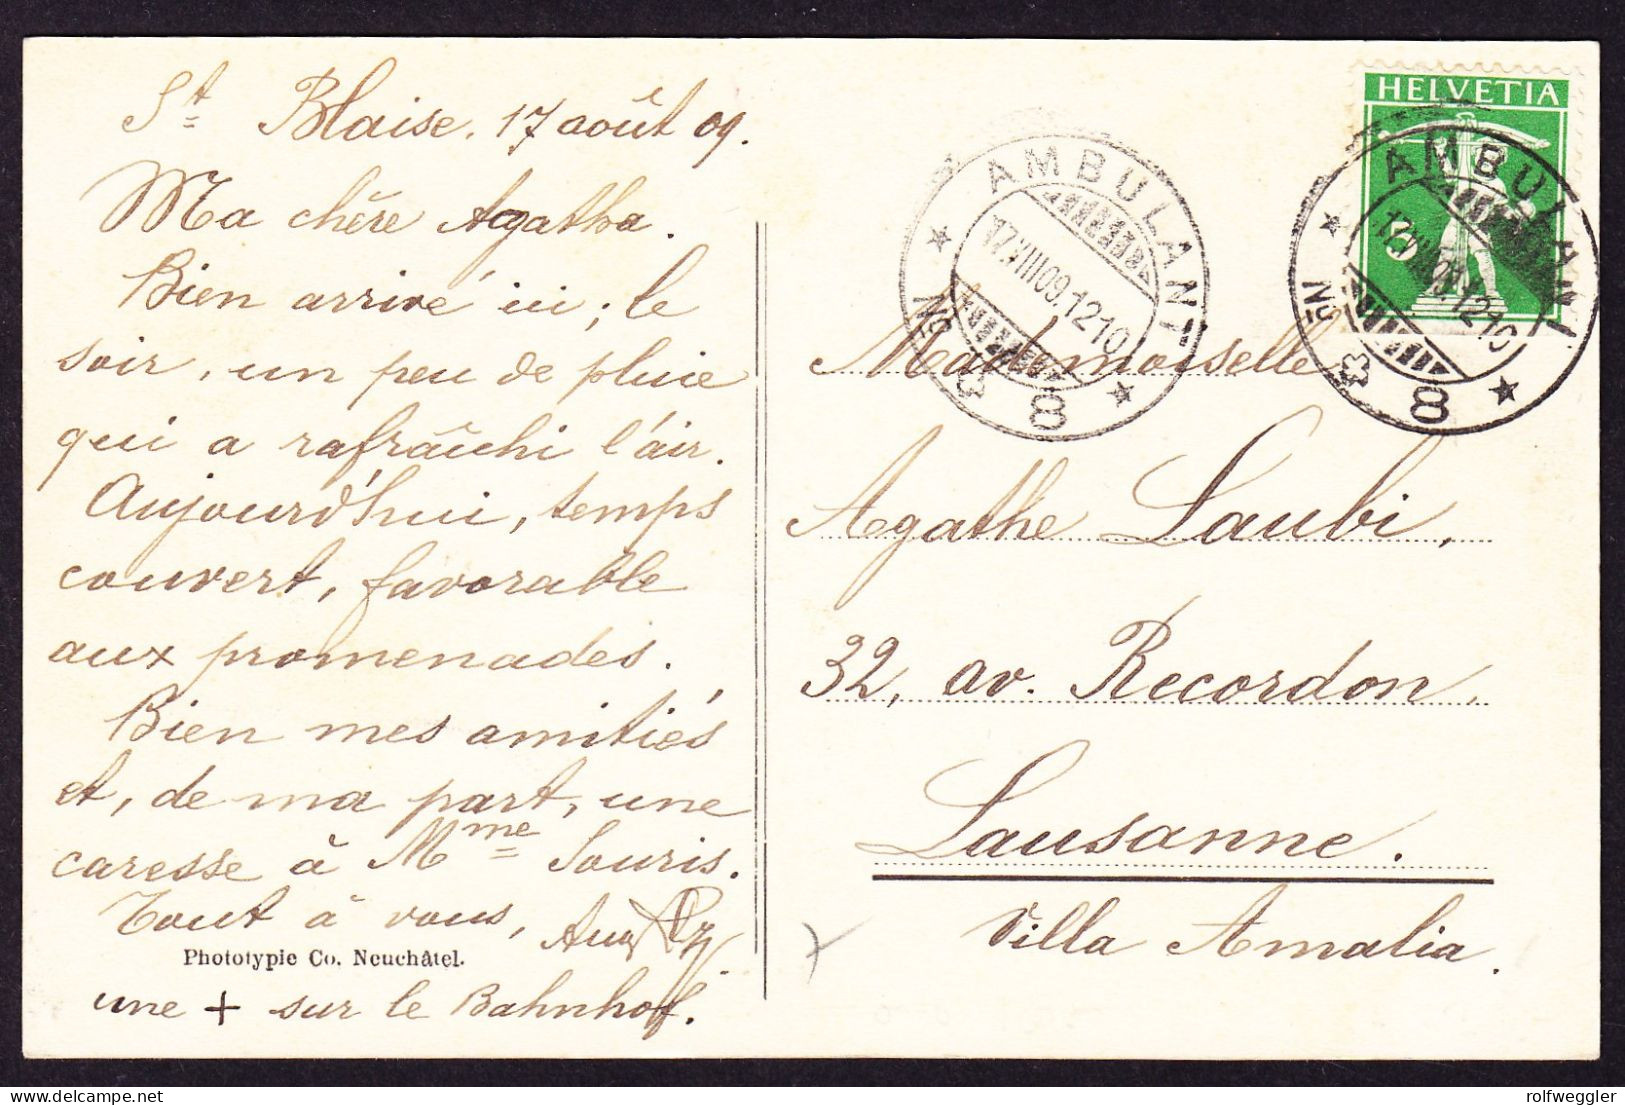 St Blaise, 17 août 09.
Ma chère Agatha.
Bien arrivé ici; le
soir, un peu de pluie
qui a rafraîchi l'air.
Aujourd'hui, temps
couvert, favorable
aux promenades.
Bien mes amitiés
et, de ma part, une
caresse à Mme Souris.
Tout à vous,
Phototypie Co. Neuchâtel.
une + sur le Bahnhof.
HELVETIA
5
AMBULANT
17.VIII09.1210
No 8
AMBULANT
17.VIII09.1210
No 8
Mademoiselle
Agathe Laubi,
32, av. Recordon.
Lausanne.
Villa Amalia.
delcampe.net
rolfweggler